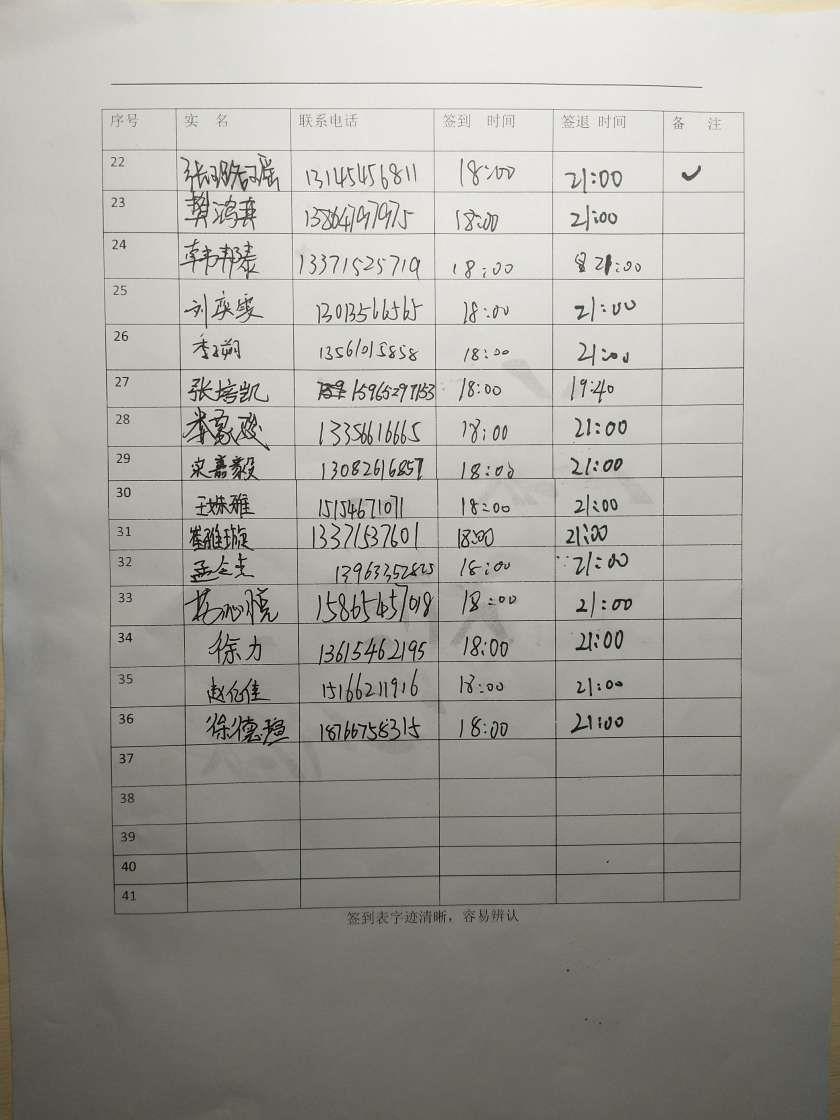 序号 实 名 联系电话 签到 时间 签退 时间 备 注
22 张璐瑶 13145456811 18:00 21:00 ✓
23 樊鸿 13864797975 18:00 21:00
24 韩邦泰 13371525719 18:00 21:00
25 刘奕雯 13013566565 18:00 21:00
26 季朔 13561015858 18:00 21:00
27 张培凯 15965297153 18:00 19:40
28 李家骏 13356616665 18:00 21:00
29 宋嘉毅 13082616857 18:00 21:00
30 王姝雅 15154671071 18:00 21:00
31 崔雅璇 13371537601 18:00 21:00
32 孟 13963352825 18:00 21:00
33 15865457018 18:00 21:00
34 徐力 13615462195 18:00 21:00
35 赵亿佳 15166211916 18:00 21:00
36 徐德瑄 18766758315 18:00 21:00
37
38
39
40
41
签到表字迹清晰，容易辨认